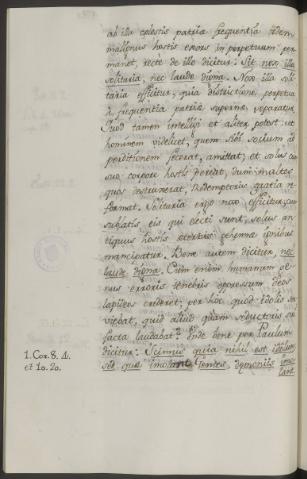 ab illa celestis patriæ frequentia idem
malignus hostis exors in perpetuum per
manet, recte de illo dicitur: Sit nox illa
solitaria, nec laude digna. Nox illa soli
taria efficitur, quia districtione perpetua
à frequentia patriæ supernæ separatur.
Quod tamen intelligi et aliter potest: ut
hominem videlicet, quem sibi socium ad
perditionem fecerat, amittat, et solus cum
suo corpore hostis pereat, dum multos
quos destruxerat, Redemptoris gratia re
format. Solitaria ergo nox efficitur, cum
sublatis eis qui electi sunt, solus an
tiquus hostis æternis gehennæ ignibus
mancipatur. Bene autem dicitur, nec
laude digna. Cum enim humanum ge
nus erroris tenebris depressum deos
lapides crederet, per hoc quod idolis ser
viebat, quid aliud quam seductoris sui
facta laudabat? Unde bene per Paulum
dicitur: Scimus quia nihil est idolum
1. Cor. 8. 4.
sed quæ immolant Gentes, demoniis immo
et 10. 20.
lant